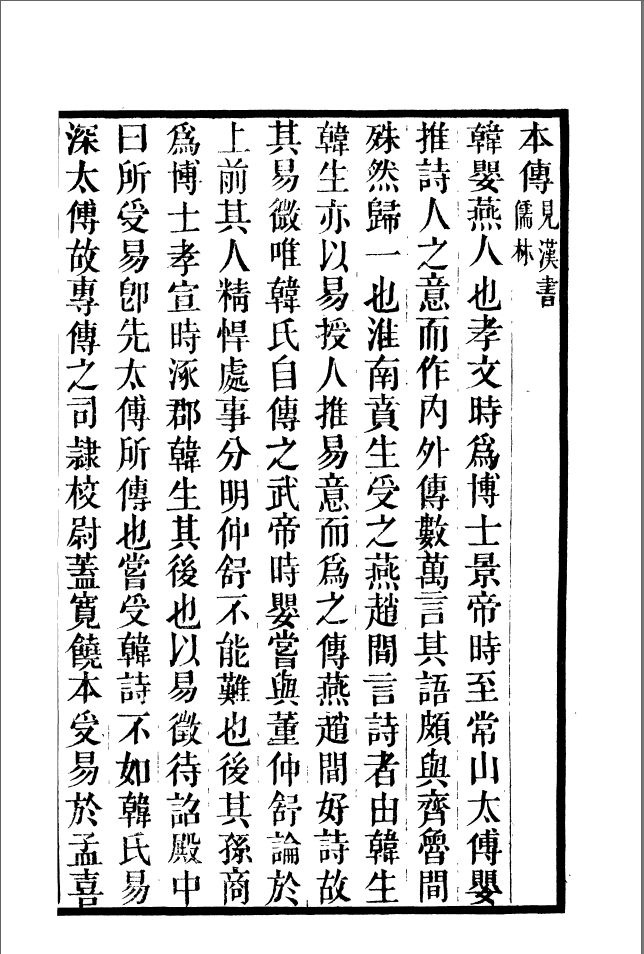 本傳見漢書儒林
韓嬰燕人也孝文時爲博士景帝時至常山太傅嬰
推詩人之意而作内外傳數萬言其語頗與齊魯間
殊然歸一也淮南賁生受之燕趙間言詩者由韓生
韓生亦以易授人推易意而爲之傳燕趙間好詩故
其易微唯韓氏自傳之武帝時嬰嘗與董仲舒論於
上前其人精悍處事分明仲舒不能難也後其孫商
爲博士孝宣時涿郡韓生其後也以易徵待詔殿中
曰所受易卽先太傅所傳也嘗受韓詩不如韓氏易
深太傅故專傳之司隷校尉蓋寬饒本受易於孟喜